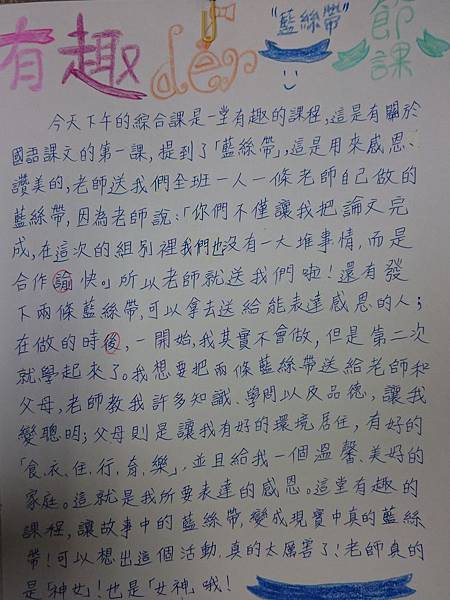 有趣den"藍絲帶"節課
今天下午的綜合課是一堂有趣的課程,這是有關於
國語課文的第一課,提到了「藍絲帶」,這是用來感恩、
讚美的,老師送我們全班一人一條老師自己做的
藍絲帶,因為老師說:「你們不僅讓我把論文完
成,在這次的組別裡我們也沒有一大堆事情,而是
合作諭快。」所以老師就送我們啦!還有發
下兩條藍絲帶,可以拿去送給能表達感恩的人;
在做的時後,一開始,我其實不會做,但是第二次
就學起來了。我想要把兩條藍絲帶送給老師和
父母,老師教我許多知識、學問以及品德,讓我
變聰明;父母則是讓我有好的環境居住,有好的
「食、衣、住、行、育、樂」,並且給我一個溫馨、美好的
家庭。這就是我所要表達的感恩。這堂有趣的
課程,讓故事中的藍絲帶,變成現實中真的藍絲
帶!可以想出這個活動,真的太厲害了!老師真的
是「神女」!也是「女神」哦!